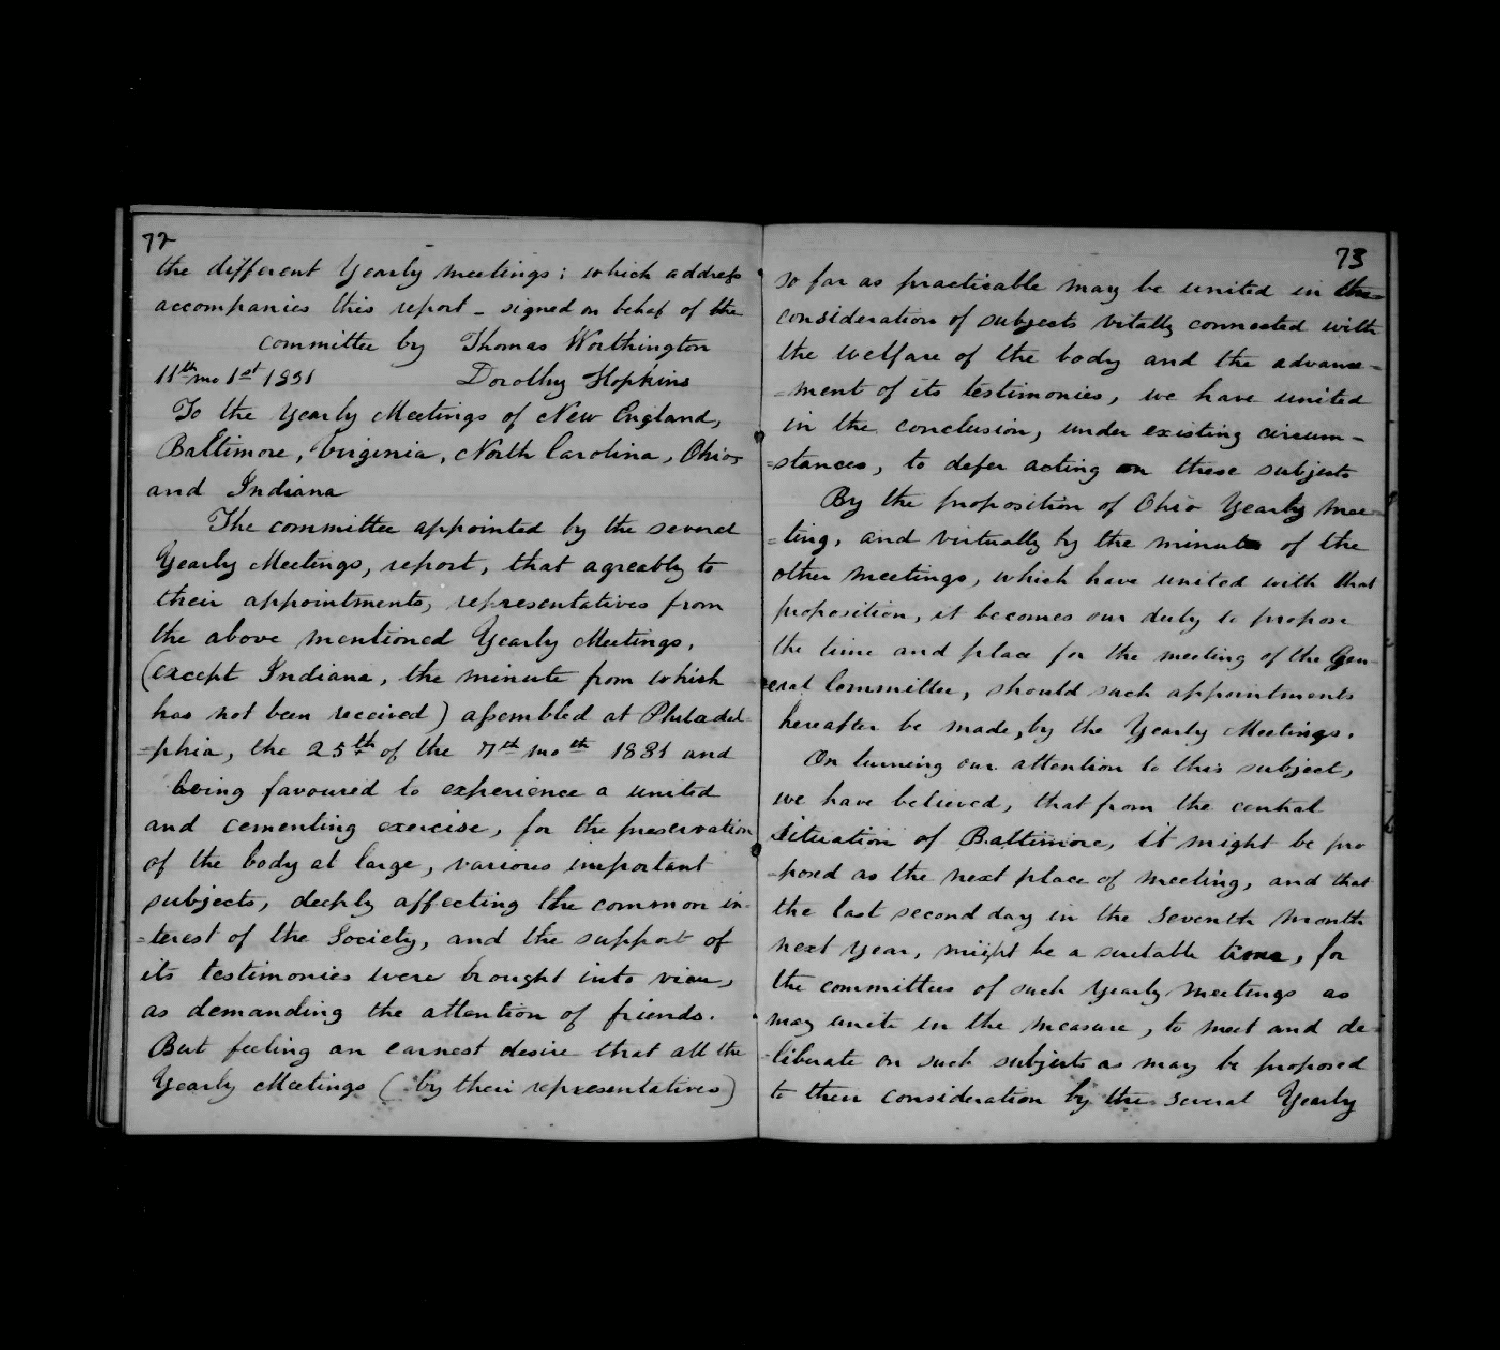 72
the different Yearly meetings; which address
accompanies this report - signed on behaf of the
committee by Thomas Worthington
11th mo 1st 1831 Dorothy Hopkins
To the Yearly Meetings of New England,
Baltimore, Virginia, North Carolina, Ohio,
and Indiana
The committee appointed by the several
Yearly Meetings, report, that agreably to
their appointments, representatives from
the above mentioned Yearly Meetings,
(except Indiana, the minute from which
has not been received) assembled at Philadel-
-phia, the 25th of the 7th mo th 1831 and
being favoured to experience a united
and cementing exercise, for the preservation
of the body at large, various important
subjects, deeply affecting the common in-
-terest of the Society, and the support of
its testimonies were brought into view,
as demanding the attention of friends.
But feeling an earnest desire that all the
Yearly Meetings (by their representatives)
73
so far as practicable may be united in the
consideration of subjects vitally connected with
the welfare of the body and the advance-
-ment of its testimonies, we have united
in the conclusion, under existing circum-
-stances, to defer acting on these subjects
By the proposition of Ohio Yearly Mee-
-ting, and virtually by the minutes of the
other meetings, which have united with that
proposition, it becomes our duty to propose
the time and place for the meeting of the Gen-
eral Committee, should such appointments
hereafter be made, by the Yearly Meetings.
On turning our attention to this subject,
we have believed, that from the central
situation of Baltimore, it might be pro
-posed as the next place of meeting, and that
the last second day in the seventh month
next year, might be a suitable time, for
the committees of such Yearly Meetings as
may unite in the measure, to meet and de-
-liberate on such subjects as may be proposed
to their consideration by the several Yearly